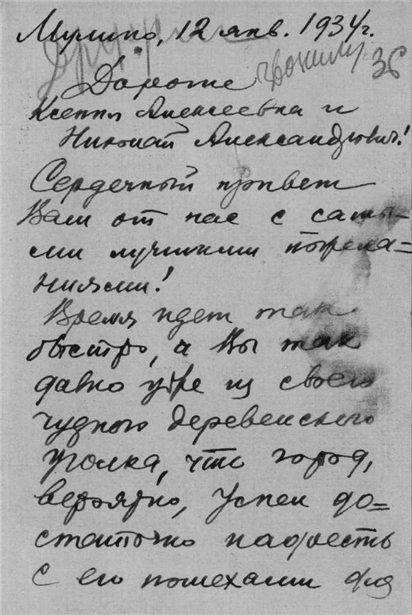 Мулино, 12 янв. 1934г.
36
Дорогие
Ксения Алексеевна и
Николай Александрович!
Сердечный привет
Вам от нас с самы-
ми лучшими пожела=
ниями!
Время идет так
быстро, а Вы так
давно уже из своего
чудного деревенского
уголка, что город,
вероятно, успел до=
статочно надоесть
с его помехами для